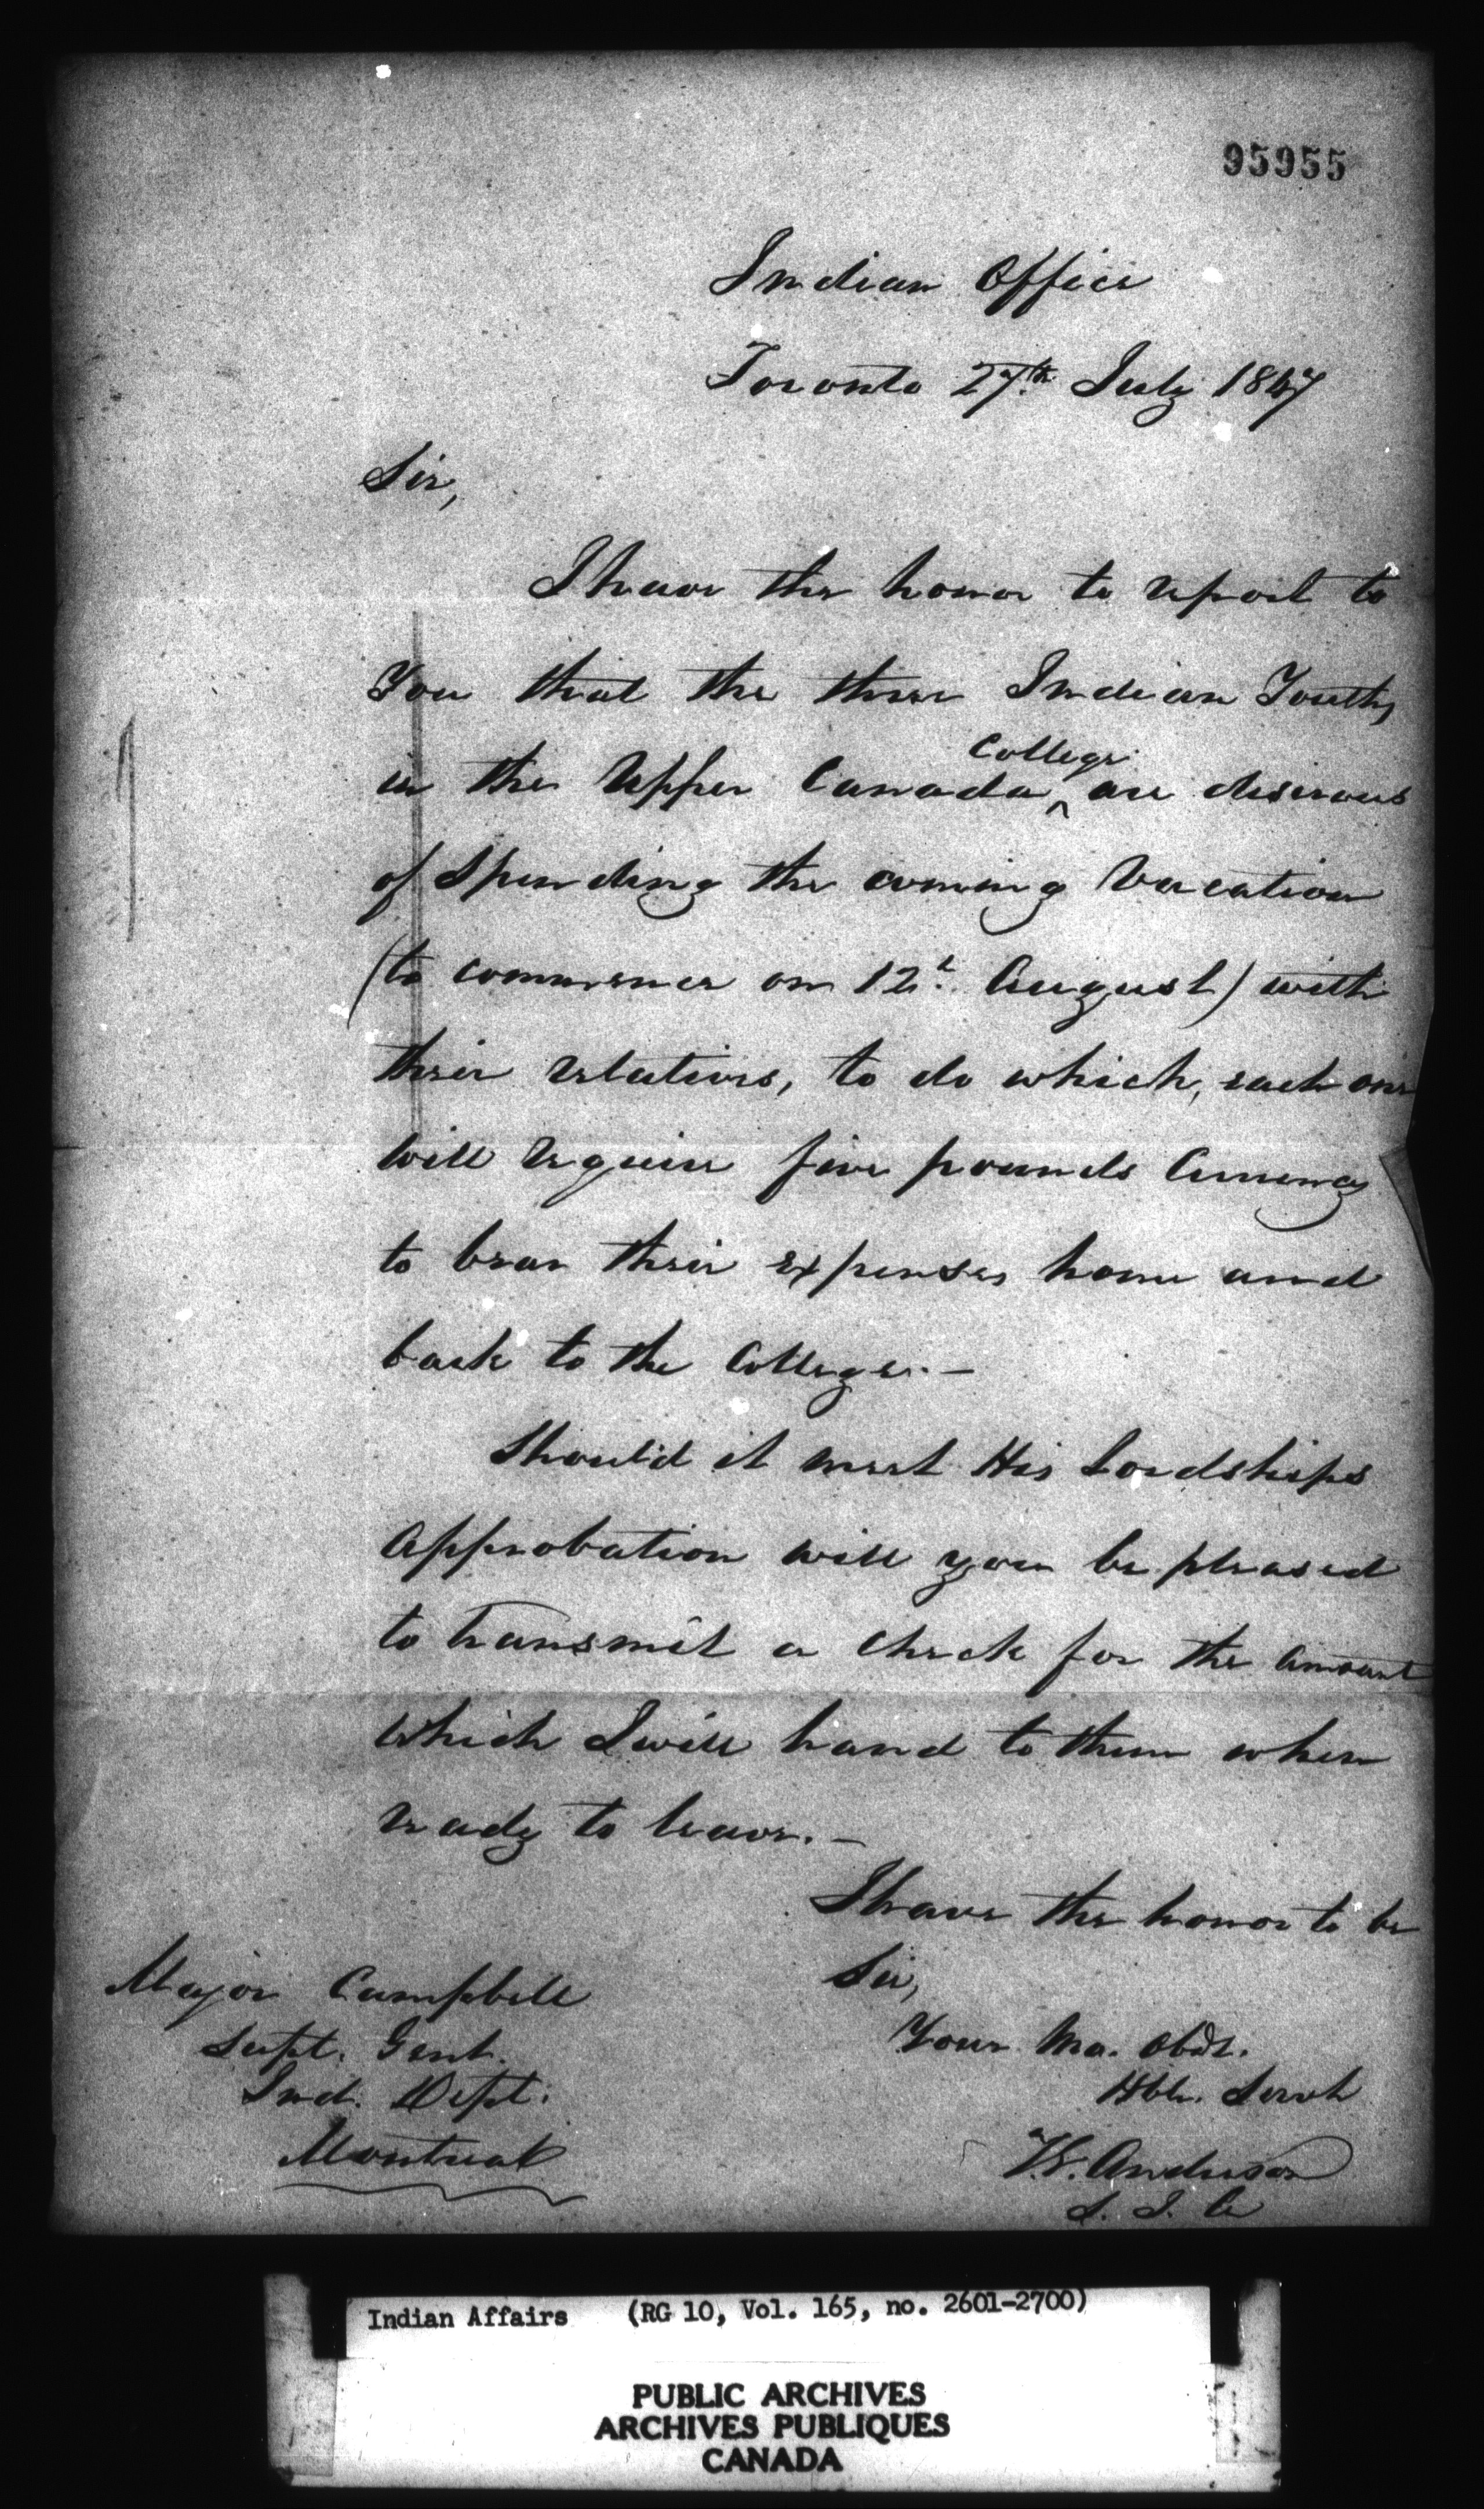 95955
Indian Office
Toronto 27th July 1847
Sir,
I have the honor to report to
You that the three Indian Youths
in the Upper Canada ^College are desirous
of Spending the coming Vacation
(to commence on 12t. August) with
their relatives, to do which, each one
will require five pounds Currency
to bear their expenses home and
back to the College.—
Should it meet His Lordships
Approbation will you be pleased
to transmit a check for the amount
which I will hand to them when
ready to leave.—
I have the honor to be
Sir,
Your Mo. Obdt.
Hble. Servt
T.G. Anderson
S. I. A
Major Campbell
Supt. Genl.
Ind. Dept.
Montreal
Indian Affairs (RG 10, Vol. 165, no. 2601-2700)
PUBLIC ARCHIVES
ARCHIVES PUBLIQUES
CANADA